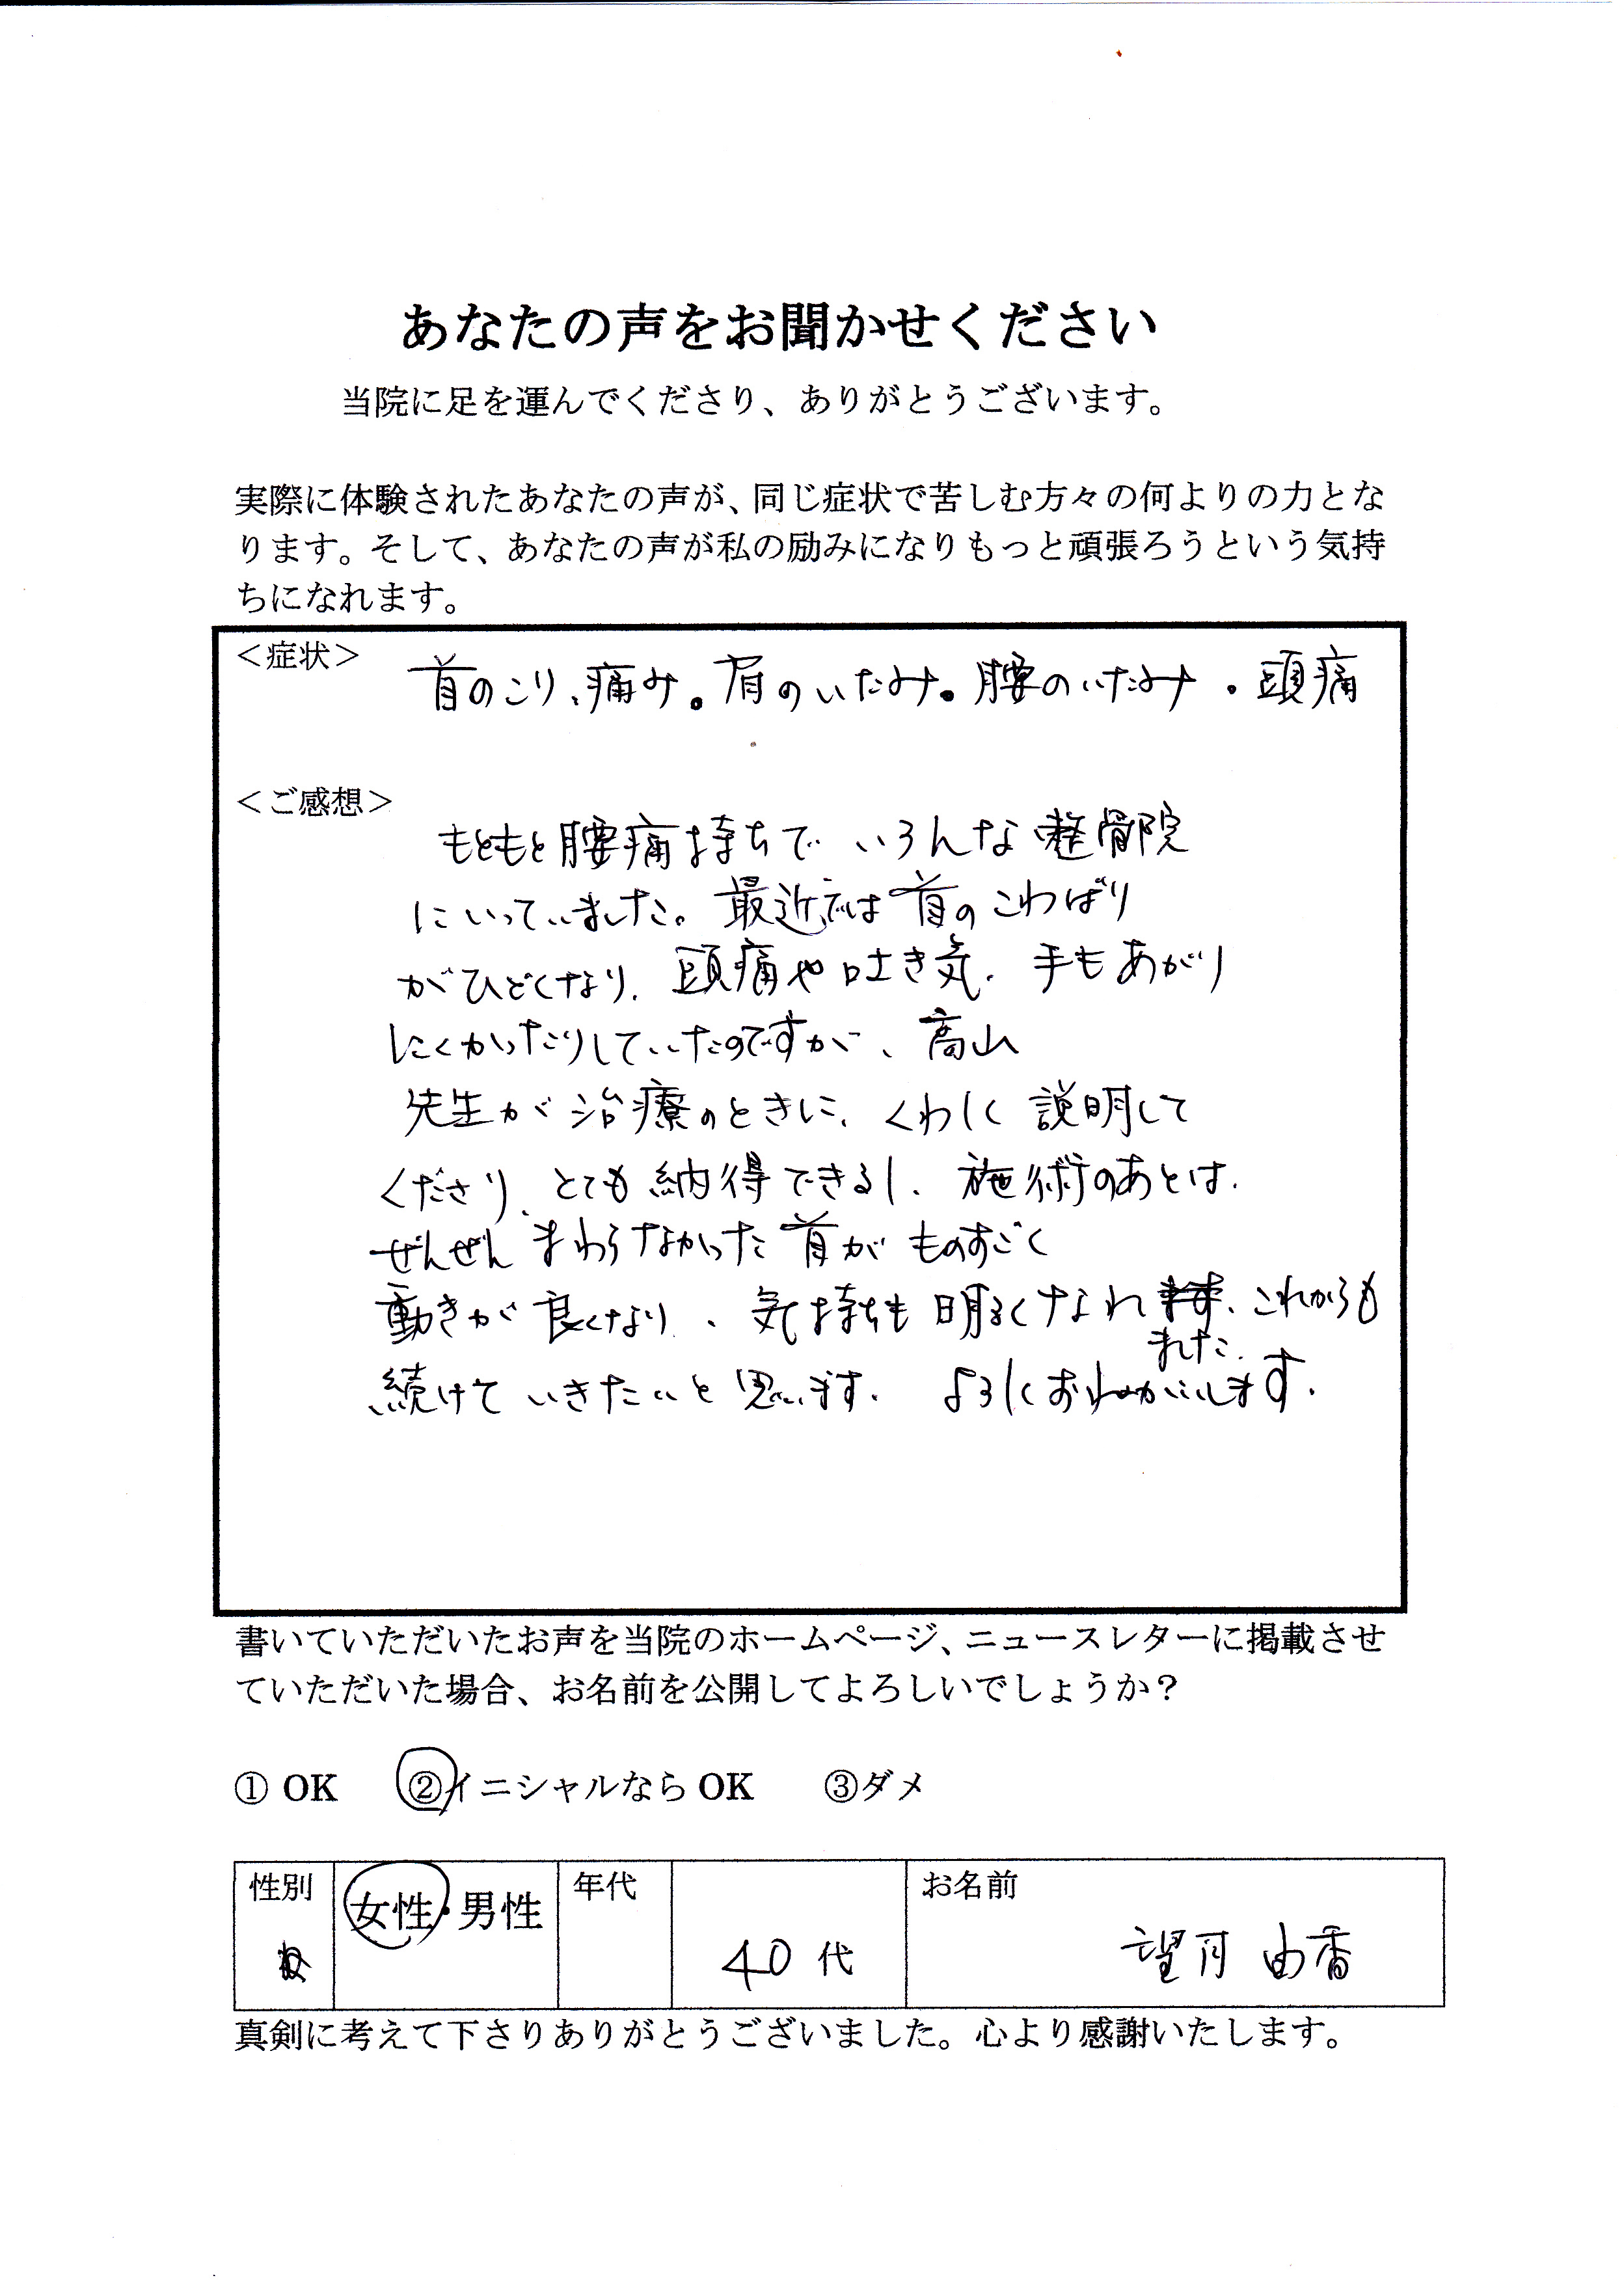 あなたの声をお聞かせください
当院に足を運んでくださり、ありがとうございます。
実際に体験されたあなたの声が、同じ症状で苦しむ方々の何よりの力とな
ります。そして、あなたの声が私の励みになりもっと頑張ろうという気持
ちになれます。
＜症状＞
首のこり、痛み。肩のいたみ。腰のいたみ。頭痛
＜ご感想＞
もともと腰痛持ちで いろんな整骨院
にいっていました。最近では首のこわばり
がひどくなり、頭痛や吐き気、手もあがり
にくかったりしていたのですが、高山
先生が治療のときに、くわしく説明して
くださり、とても納得できるし、施術のあとは、
ぜんぜんまわらなかった首がものすごく
動きが良くなり、気持ちも明るくなれました。これからも
続けていきたいと思います。よろしくおねがいします。
書いていただいたお声を当院のホームページ、ニュースレターに掲載させ
ていただいた場合、お名前を公開してよろしいでしょうか？
① OK ②イニシャルなら OK ③ダメ
性別 女性・男性 年代 40代 お名前 望月 由香
真剣に考えて下さりありがとうございました。心より感謝いたします。